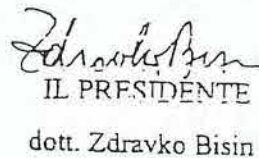 Zdravko Bisin
IL PRESIDENTE
dott. Zdravko Bisin